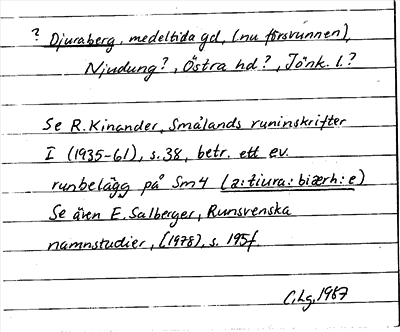 ? Djuraberg, medeltida gd, (nu försvunnen),
Njudung?, Östra hd?, Jönk. l.?
Se R. Kinander, Smålands runinskrifter
I (1935-61), s. 38, betr. ett ev.
runbelägg på Sm 4 (a:tiura:biærh:e)
Se även E. Salberger, Runsvenska
namnstudier, (1978), s. 195f.
C.Lg. 1987